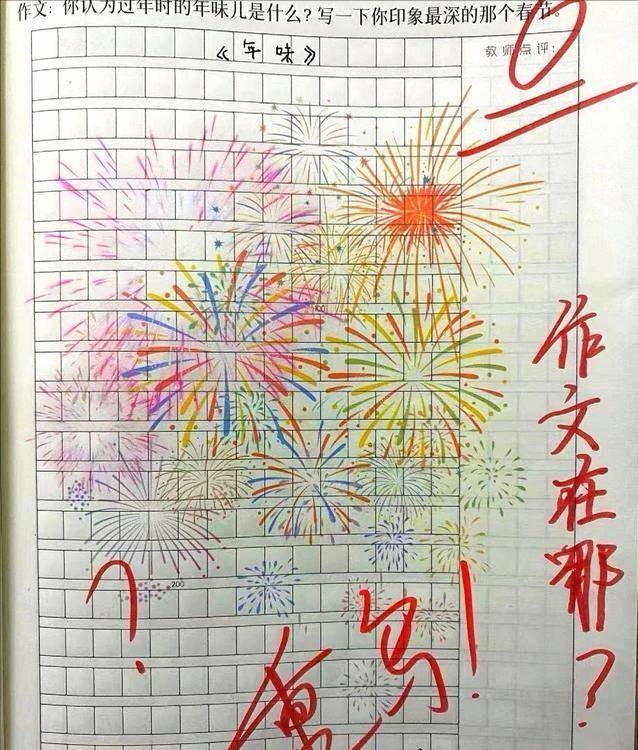 作文：你认为过年时的年味儿是什么？写一下你印象最深的那个春节。
《年味》
教师点评：
0
100
200
作文在哪？
？
重写！